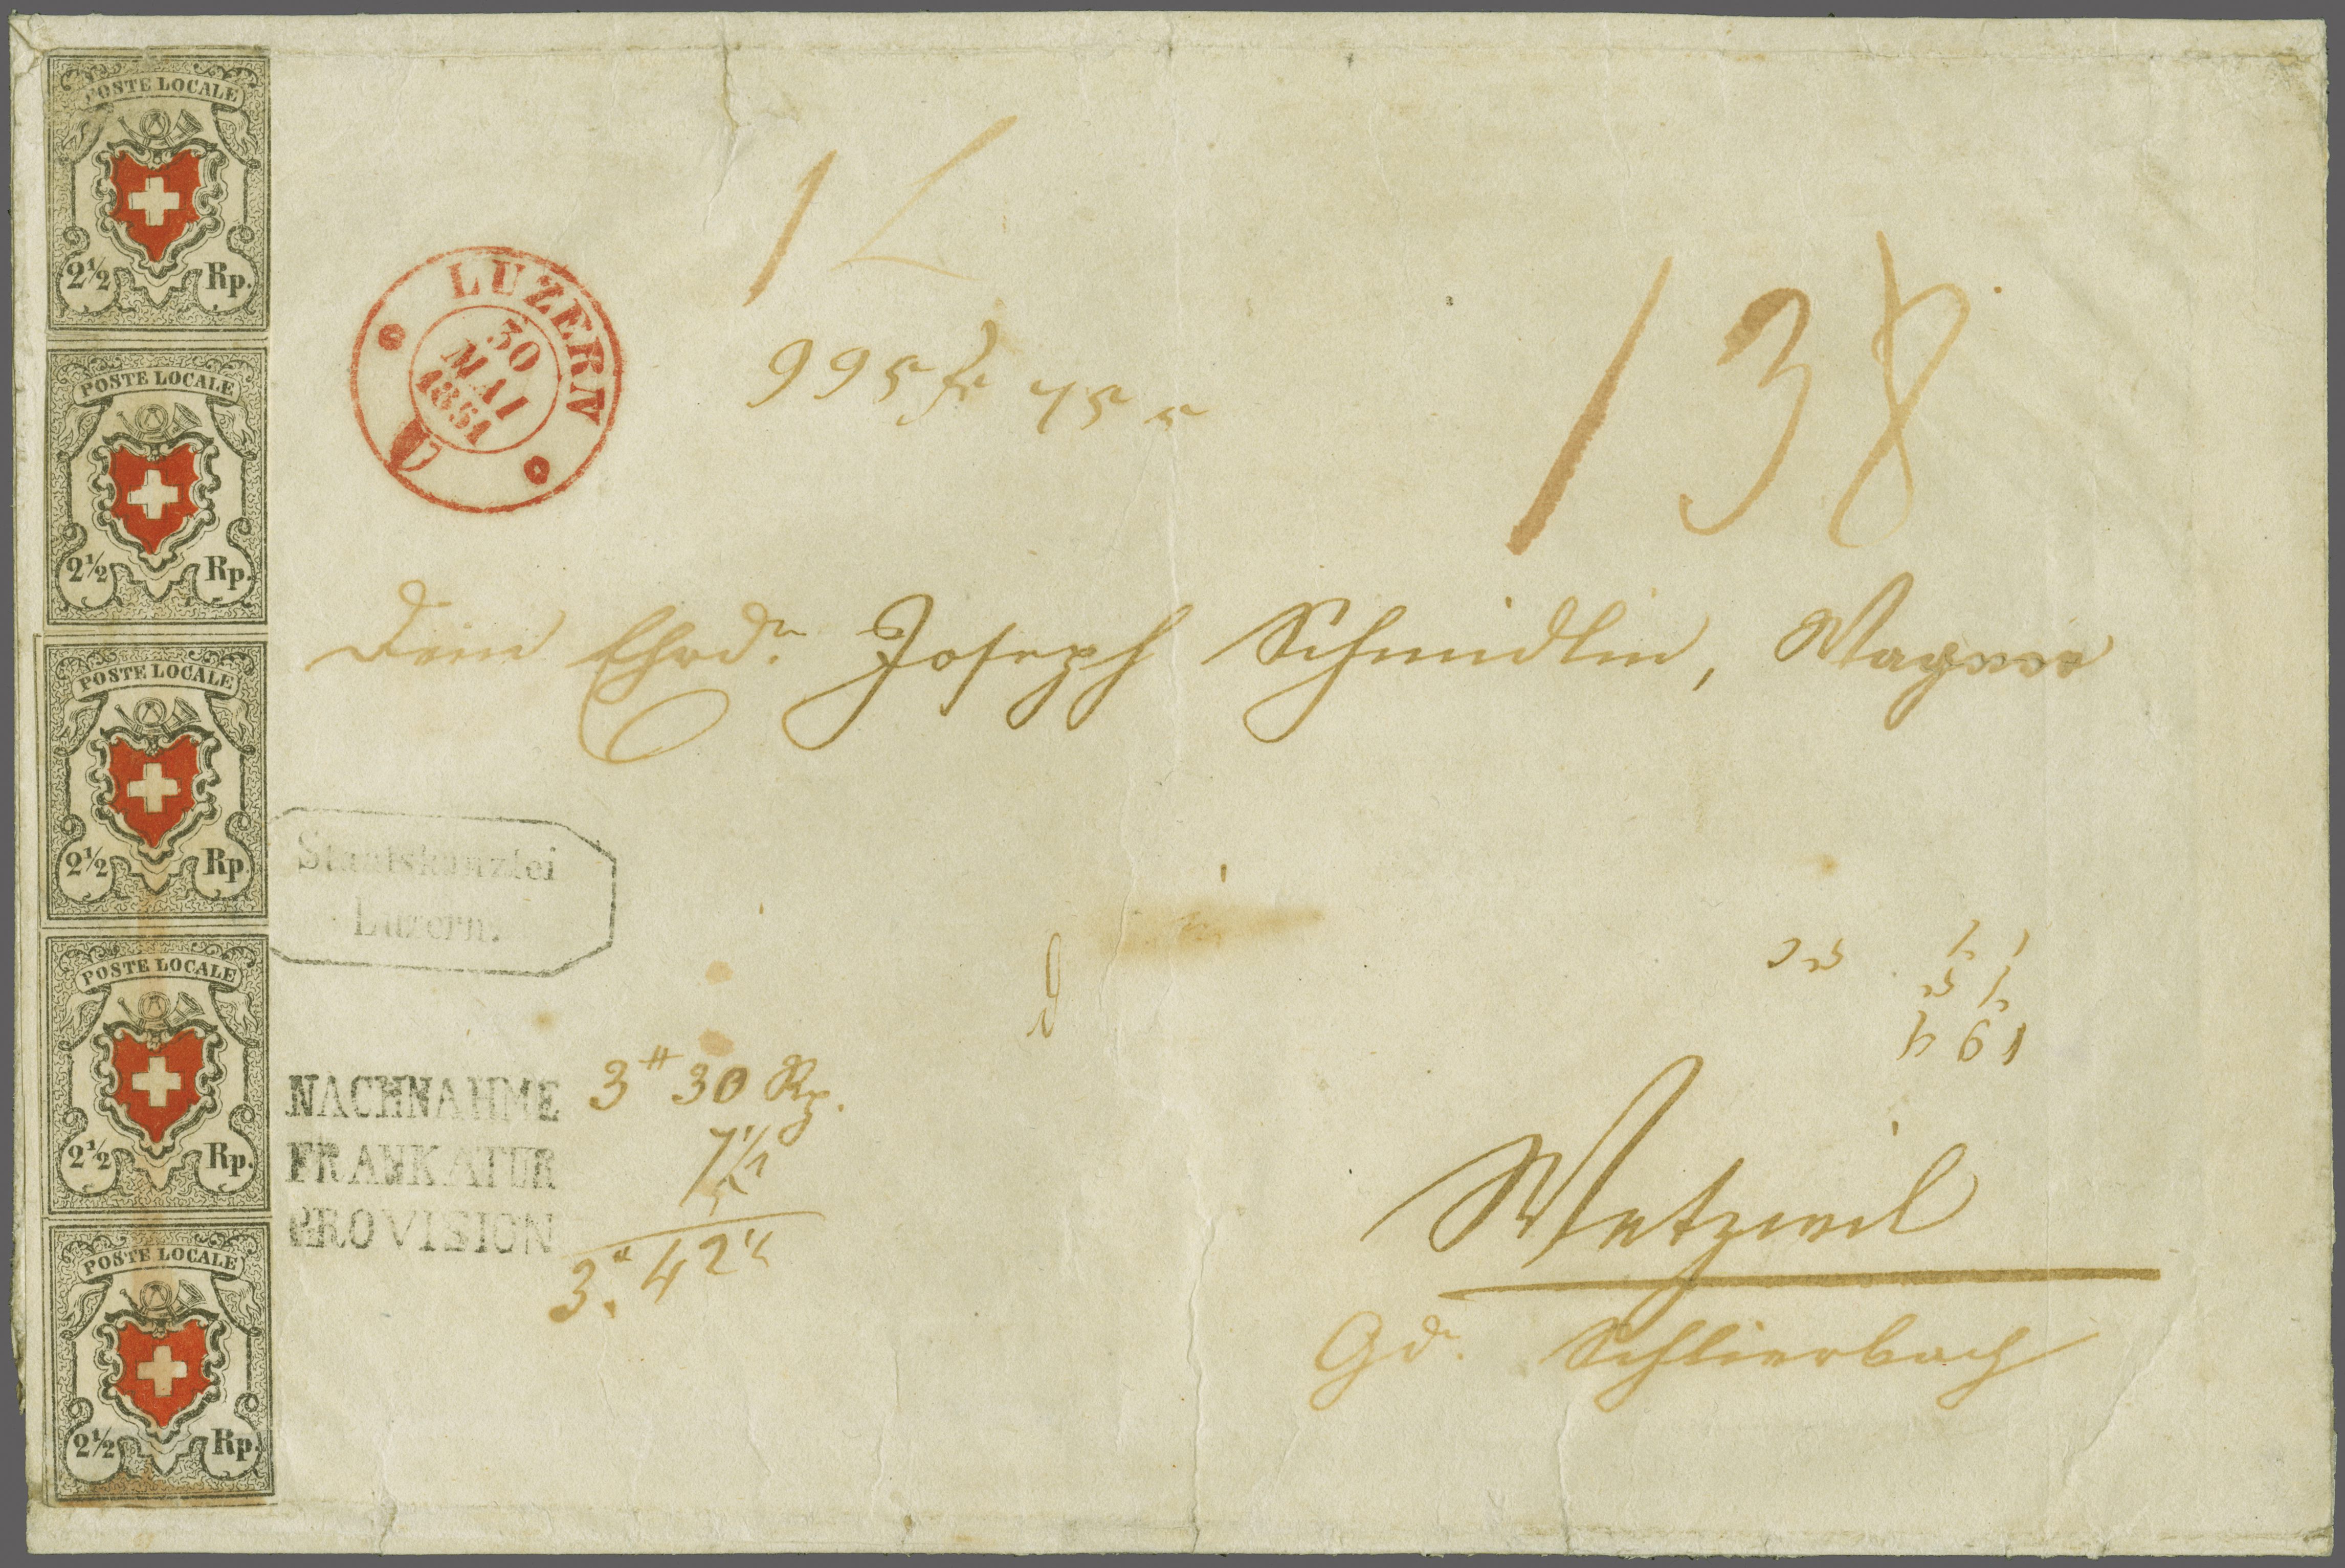 POSTE LOCALE
2½ Rp.
POSTE LOCALE
2½ Rp.
POSTE LOCALE
2½ Rp.
POSTE LOCALE
2½ Rp.
POSTE LOCALE
2½ Rp.
LUZERN
30
MAI
1851
138
Dem Ehrd. Joseph Schmidlin, Wagner
Staatskanzlei
Luzern.
NACHNAHME 3 30 Rp.
FRANKATUR 7½
PROVISION
3. 42
Wetzwil
Gd. Schlierbach